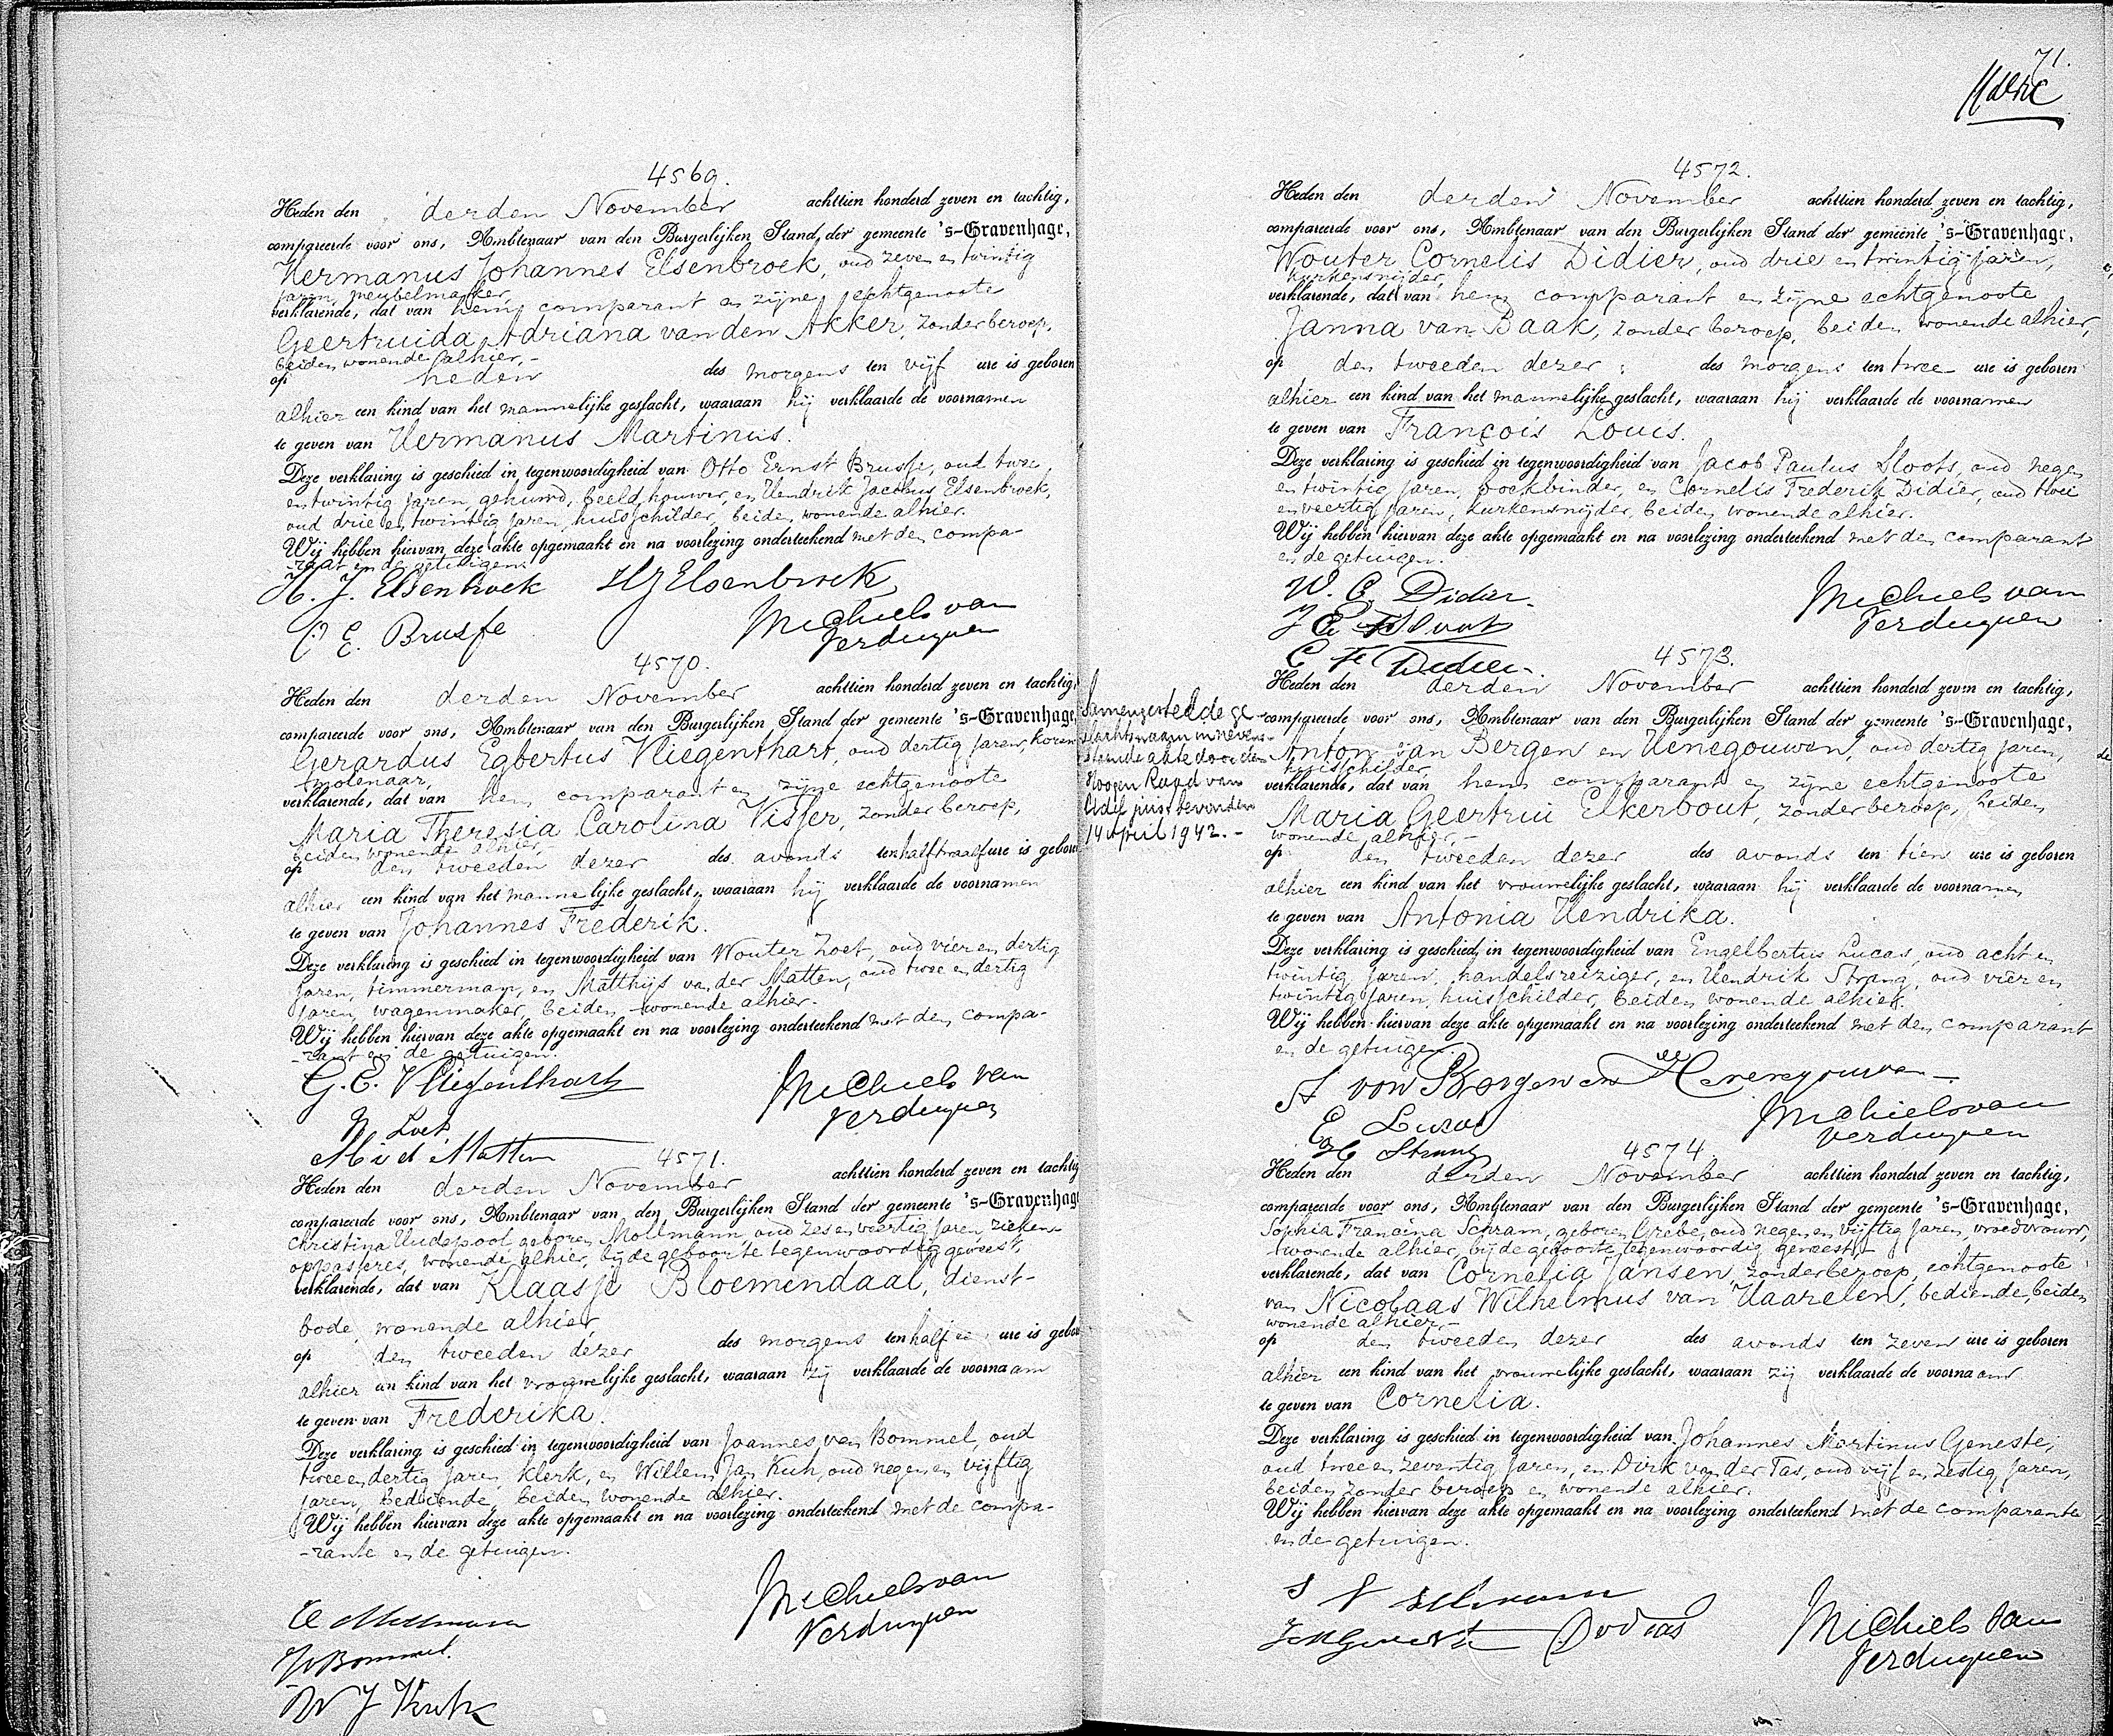 4569.
Heden den derden November achttien honderd zeven en tachtig,
compareerde voor ons, Ambtenaar van den Burgerlijken Stand der gemeente 's-Gravenhage,
Hermanus Johannes Elsenbroek, oud zeven en twintig
jaren, meubelmaker,
verklarende, dat van hem comparant en zijne echtgenoote
Geertruida Adriana van den Akker, zonder beroep,
beiden wonende alhier,-
op heden des morgens ten vijf ure is geboren
alhier een kind van het mannelijke geslacht, waaraan hij verklaarde de voornamen
te geven van Hermanus Martinus.
Deze verklaring is geschied in tegenwoordigheid van Otto Ernst Brusse, oud twee
en twintig jaren, gehuwd, beeldhouwer, en Hendrik Jacobus Elsenbroek,
oud drie en twintig jaren, huisschilder, beiden wonende alhier.
Wij hebben hiervan deze akte opgemaakt en na voorlezing onderteekend met den compa-
-rant en de getuigen.
H. J. Elsenbroek HJElsenbroek
O E. Brusse Michiels van
Verduynen
4570.
Heden den derden November achttien honderd zeven en tachtig,
compareerde voor ons, Ambtenaar van den Burgerlijken Stand der gemeente 's-Gravenhage,
Gerardus Egbertus Vliegenthart, oud dertig jaren, koren-
molenaar,
verklarende, dat van hem comparant en zijne echtgenoote
Maria Theresia Carolina Visser, zonder beroep,
beiden wonende alhier,-
op den tweeden dezer des avonds ten half twaalf ure is geboren
alhier een kind van het mannelijke geslacht, waaraan hij verklaarde de voornamen
te geven van Johannes Frederik.
Deze verklaring is geschied in tegenwoordigheid van Wouter Zoet, oud vier en dertig
jaren, timmerman, en Matthijs van der Matten, oud twee en dertig
jaren, wagenmaker, beiden wonende alhier.
Wij hebben hiervan deze akte opgemaakt en na voorlezing onderteekend met den compa-
-rant en de getuigen.
G. E. Vliegenthart Michiels van
Verduynen
W Zoet
M v d Matten
4571.
Heden den derden November achttien honderd zeven en tachtig
compareerde voor ons, Ambtenaar van den Burgerlijken Stand der gemeente 's-Gravenhage
Christina Hudepool geboren Mollmann, oud zes en veertig jaren, zieken-
oppasseres, wonende alhier, bij de geboorte tegenwoordig geweest,
verklarende, dat van Klaasje Bloemendaal, dienst-
bode, wonende alhier,
op den tweeden dezer des morgens ten half ure is geboren
alhier een kind van het vrouwelijke geslacht, waaraan zij verklaarde de voornaam
te geven van Frederika.
Deze verklaring is geschied in tegenwoordigheid van Joannes van Bommel, oud
twee en dertig jaren, klerk, en Willem Jan Kuh, oud negen en vijftig
jaren, bediende, beiden wonende alhier.
Wij hebben hiervan deze akte opgemaakt en na voorlezing onderteekend met de compa-
-rante en de getuigen.
C Mollmann Michiels van
Verduynen
JvBommel.
W J Kuh
71.
4572.
Heden den derden November achttien honderd zeven en tachtig,
compareerde voor ons, Ambtenaar van den Burgerlijken Stand der gemeente 's-Gravenhage,
Wouter Cornelis Didier, oud drie en twintig jaren,
kurkensnijder,
verklarende, dat van hem comparant en zijne echtgenoote
Janna van Baak, zonder beroep, beiden wonende alhier,
op den tweeden dezer des morgens ten twee ure is geboren
alhier een kind van het mannelijke geslacht, waaraan hij verklaarde de voornamen
te geven van François Louis.
Deze verklaring is geschied in tegenwoordigheid van Jacob Paulus Sloots, oud negen
en twintig jaren, boekbinder, en Cornelis Frederik Didier, oud twee
en veertig jaren, kurkensnijder, beiden wonende alhier.
Wij hebben hiervan deze akte opgemaakt en na voorlezing onderteekend met den comparant
en de getuigen.
W. C. Didier. Michiels van
Verduynen
C F Didier.
4573.
Heden den derden November achttien honderd zeven en tachtig,
compareerde voor ons, Ambtenaar van den Burgerlijken Stand der gemeente 's-Gravenhage,
Anton van Bergen en Henegouwen, oud dertig jaren,
huisschilder,
verklarende, dat van hem comparant en zijne echtgenoote
Maria Geertrui Elkerbout, zonder beroep, beiden
wonende alhier,-
op den tweeden dezer des avonds ten tien ure is geboren
alhier een kind van het vrouwelijke geslacht, waaraan hij verklaarde de voornamen
te geven van Antonia Hendrika.
Deze verklaring is geschied in tegenwoordigheid van Engelbertus Lucas, oud acht en
twintig jaren, handelsreiziger, en Hendrik Strang, oud vier en
twintig jaren, huisschilder, beiden wonende alhier.
Wij hebben hiervan deze akte opgemaakt en na voorlezing onderteekend met den comparant
en de getuigen.
A van Bergen en Henegouwen
E Lucas Michiels van
Verduynen
H Strang
Samengestelde ge-
slachtsnaam in neven-
staande akte door den
Hoogen Raad van
Adel juist bevonden
14 april 1942.-
4574.
Heden den derden November achttien honderd zeven en tachtig,
compareerde voor ons, Ambtenaar van den Burgerlijken Stand der gemeente 's-Gravenhage,
Sophia Francina Schram, geboren Grebe, oud negen en vijftig jaren, vroedvrouw,
wonende alhier, bij de geboorte tegenwoordig geweest,-
verklarende, dat van Cornelia Jansen, zonder beroep, echtgenoote
van Nicolaas Wilhelmus van Haarelen, bediende, beiden
wonende alhier,-
op den tweeden dezer des avonds ten zeven ure is geboren
alhier een kind van het vrouwelijke geslacht, waaraan zij verklaarde de voornaam
te geven van Cornelia.
Deze verklaring is geschied in tegenwoordigheid van Johannes Martinus Geneste,
oud twee en zeventig jaren, en Dirk van der Tas, oud vijf en zestig jaren,
beiden zonder beroep en wonende alhier.
Wij hebben hiervan deze akte opgemaakt en na voorlezing onderteekend met de comparante
en de getuigen.
S F Schram
JMGeneste DvdTas Michiels van
Verduynen